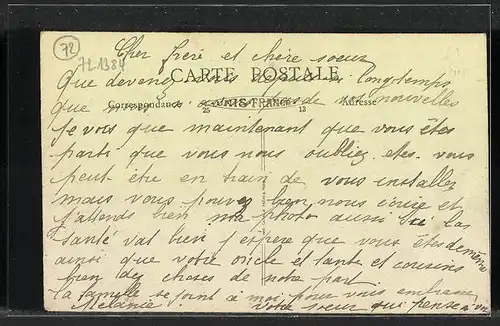 72
72 1384
Cher frère et chère soeur
Que devenez vous depuis longtemps
CARTE POSTALE
que nous de vos nouvelles
Correspondance UNIS-FRANCE Adresse
25 13
Je vois que maintenant que vous êtes
parti que vous nous oubliez. etes. vous
peut être en train de vous installer
mais vous pouvez bien nous écrire et
j'attends bien ma photo aussi ici la
santé vat bien j'espère que vous êtes de même
ainsi que votre oncle et tante et cousins
bien des choses de notre part
la famille se joint a moi pour vous embrasser
Mélanie votre soeur qui pense a vous